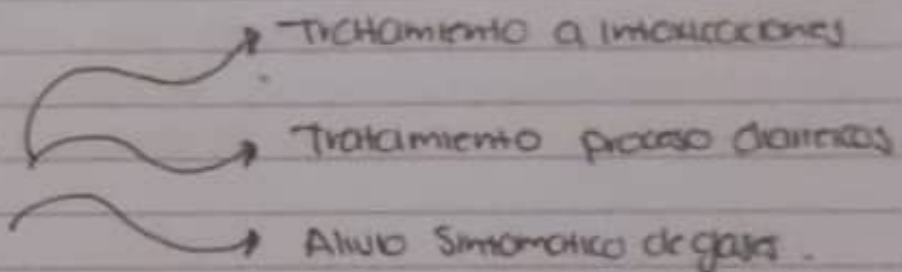 Tratamiento a intoxicaciones
Tratamiento proceso diarreicos
Alivio Sintomatico de gases.